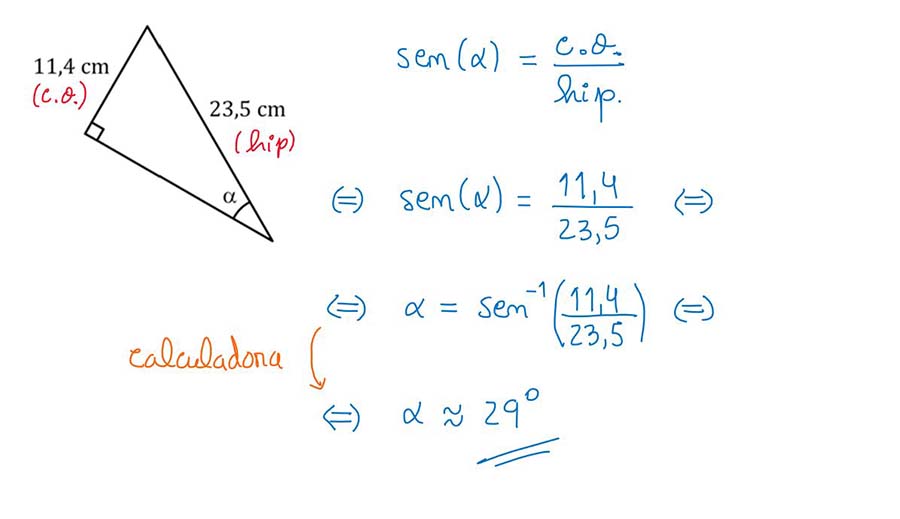 11,4 cm
(c.o.)
23,5 cm
(hip)
α
sen(α) = c.o./hip.
⇔ sen(α) = 11,4/23,5 ⇔
⇔ α = sen⁻¹(11,4/23,5) ⇔
calculadora
⇔ α ≈ 29°